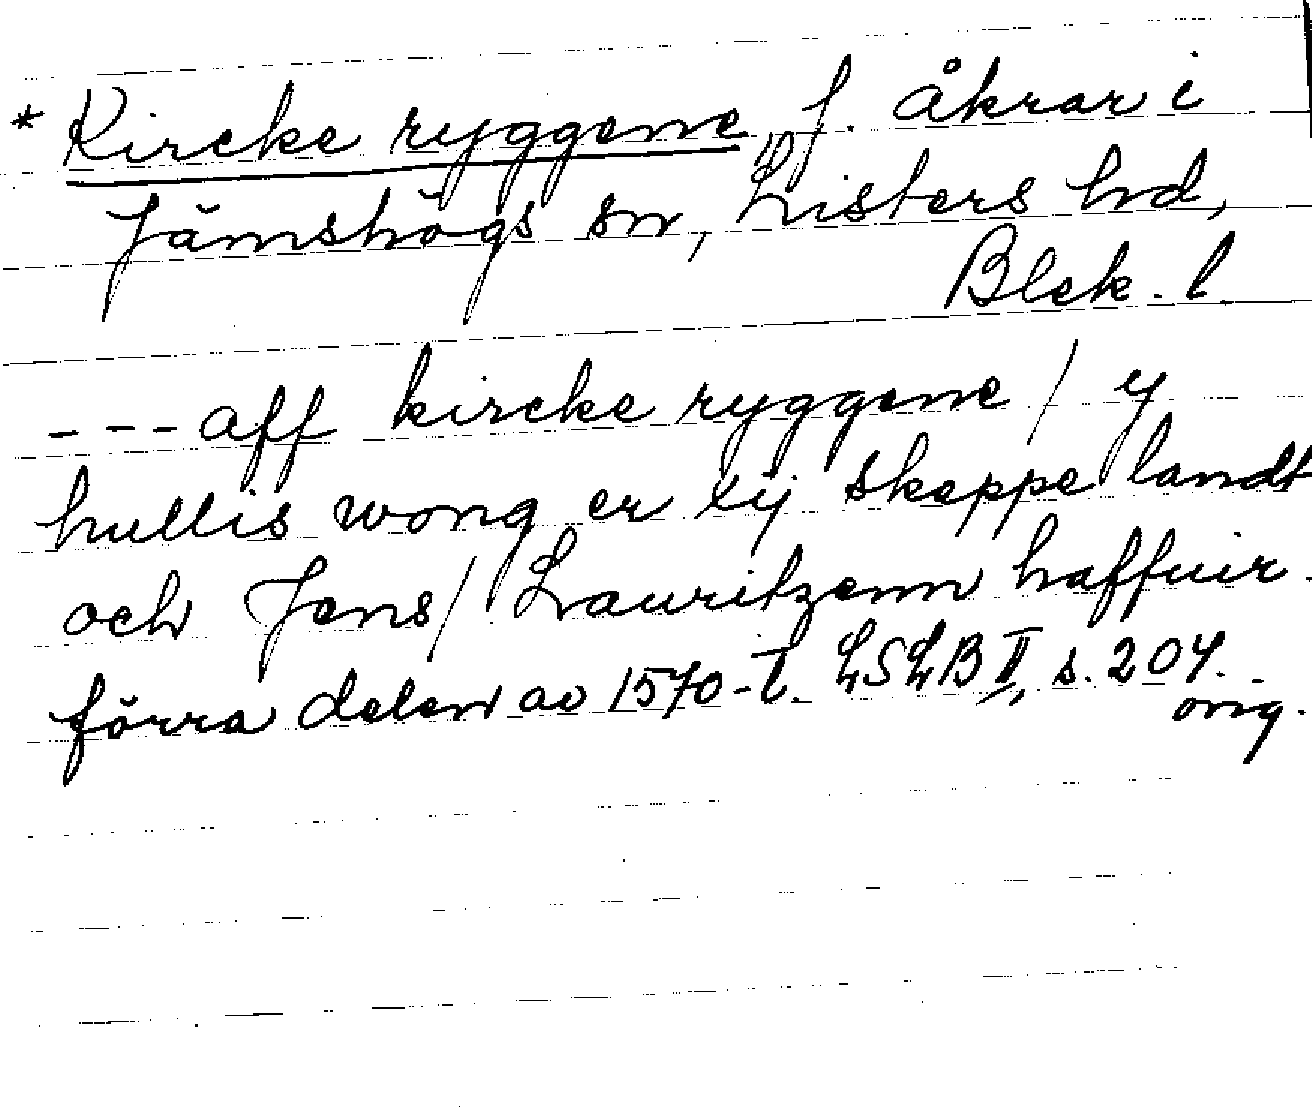 * Kircke ryggene, f. åkrar i
Jämshögs sn, Listers hd,
Blek. l.
--- aff kircke ryggene / y
hullis wong er xij skeppe landt
och Jens / Lauritzenn haffuir.
förra delen av 1570-t. LSLB II, s. 204.
orig.